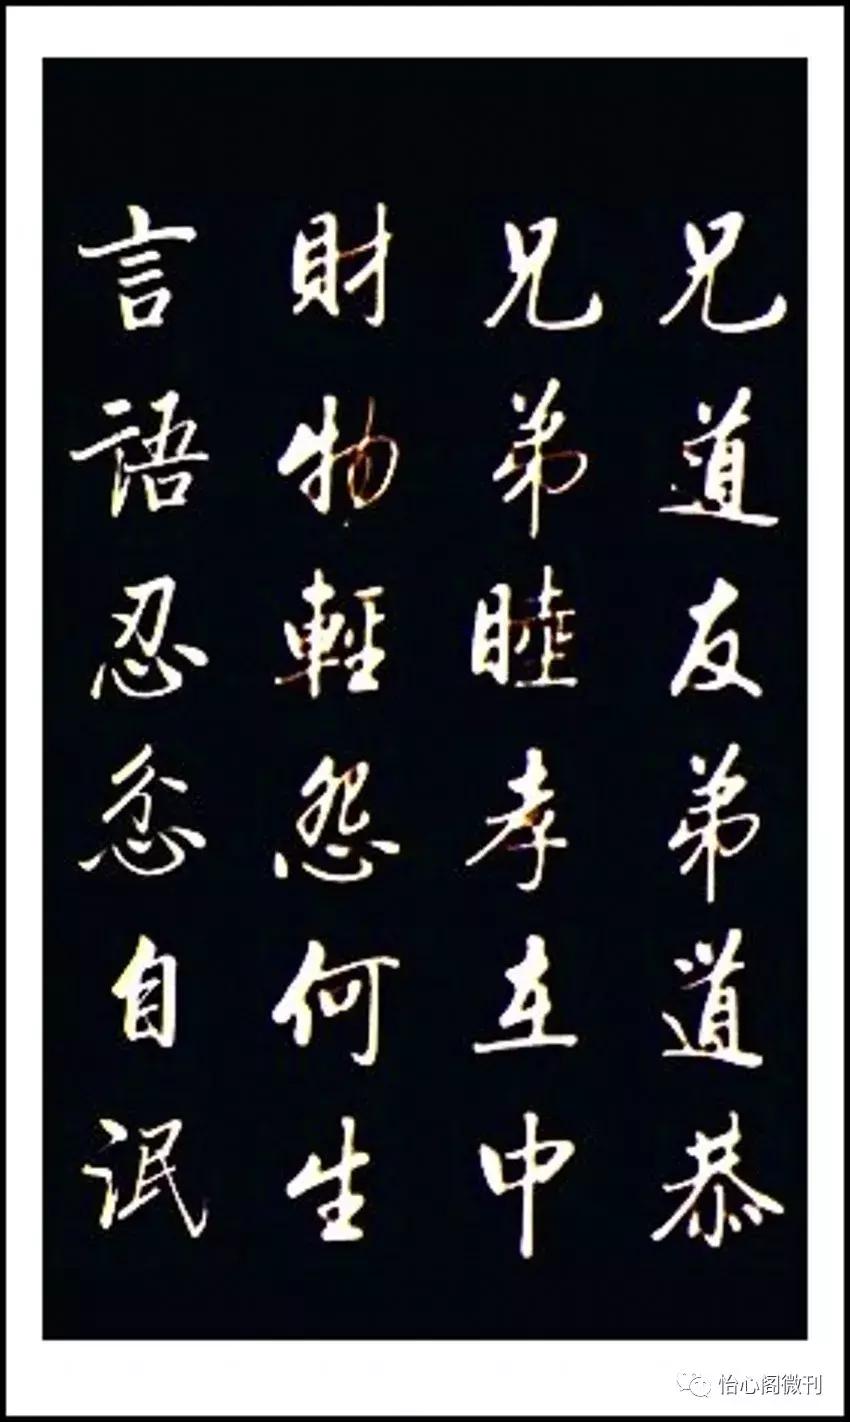 兄道友弟道恭
兄弟睦孝在中
財物輕怨何生
言語忍忿自泯
怡心阁微刊